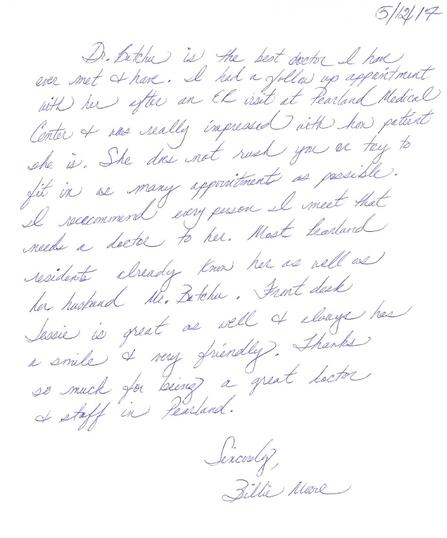 5/12/17
Dr. Betcher is the best doctor I have
ever met & have. I had a follow up appointment
with her after an ER visit at Pearland Medical
Center & was really impressed with how patient
she is. She does not rush you or try to
fit in as many appointments as possible.
I recommend every person I meet that
needs a doctor to her. Most Pearland
residents already know her as well as
her husband Mr. Betcher. Front desk
Jessie is great as well & always has
a smile & very friendly. Thanks
so much for being a great doctor
& staff in Pearland.
Sincerely,
Billie Moore